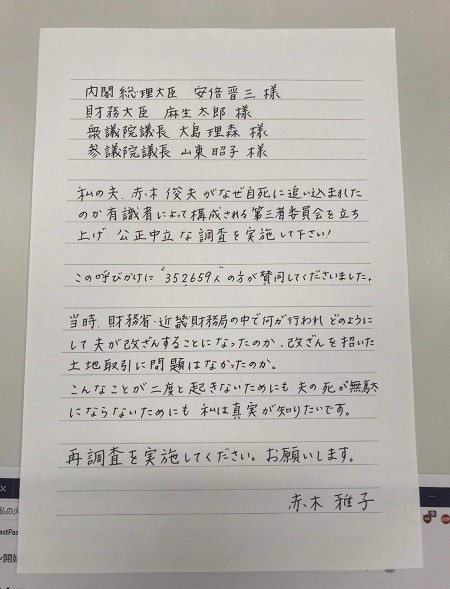 内閣総理大臣 安倍晋三様
財務大臣 麻生太郎様
衆議院議長 大島理森様
参議院議長 山東昭子様
私の夫、赤木俊夫がなぜ自死に追い込まれた
のか有識者によって構成される第三者委員会を立ち
上げ 公正中立な調査を実施して下さい!
この呼びかけに"352659人"の方が賛同してくださいました。
当時、財務省・近畿財務局の中で何が行われ どのように
して夫が改ざんすることになったのか、改ざんを招いた
土地取引に問題はなかったのか。
こんなことが二度と起きないためにも 夫の死が無駄
にならないためにも 私は真実が知りたいです。
再調査を実施してください。お願いします。
赤木 雅子
私の夫
astPas
ン開始